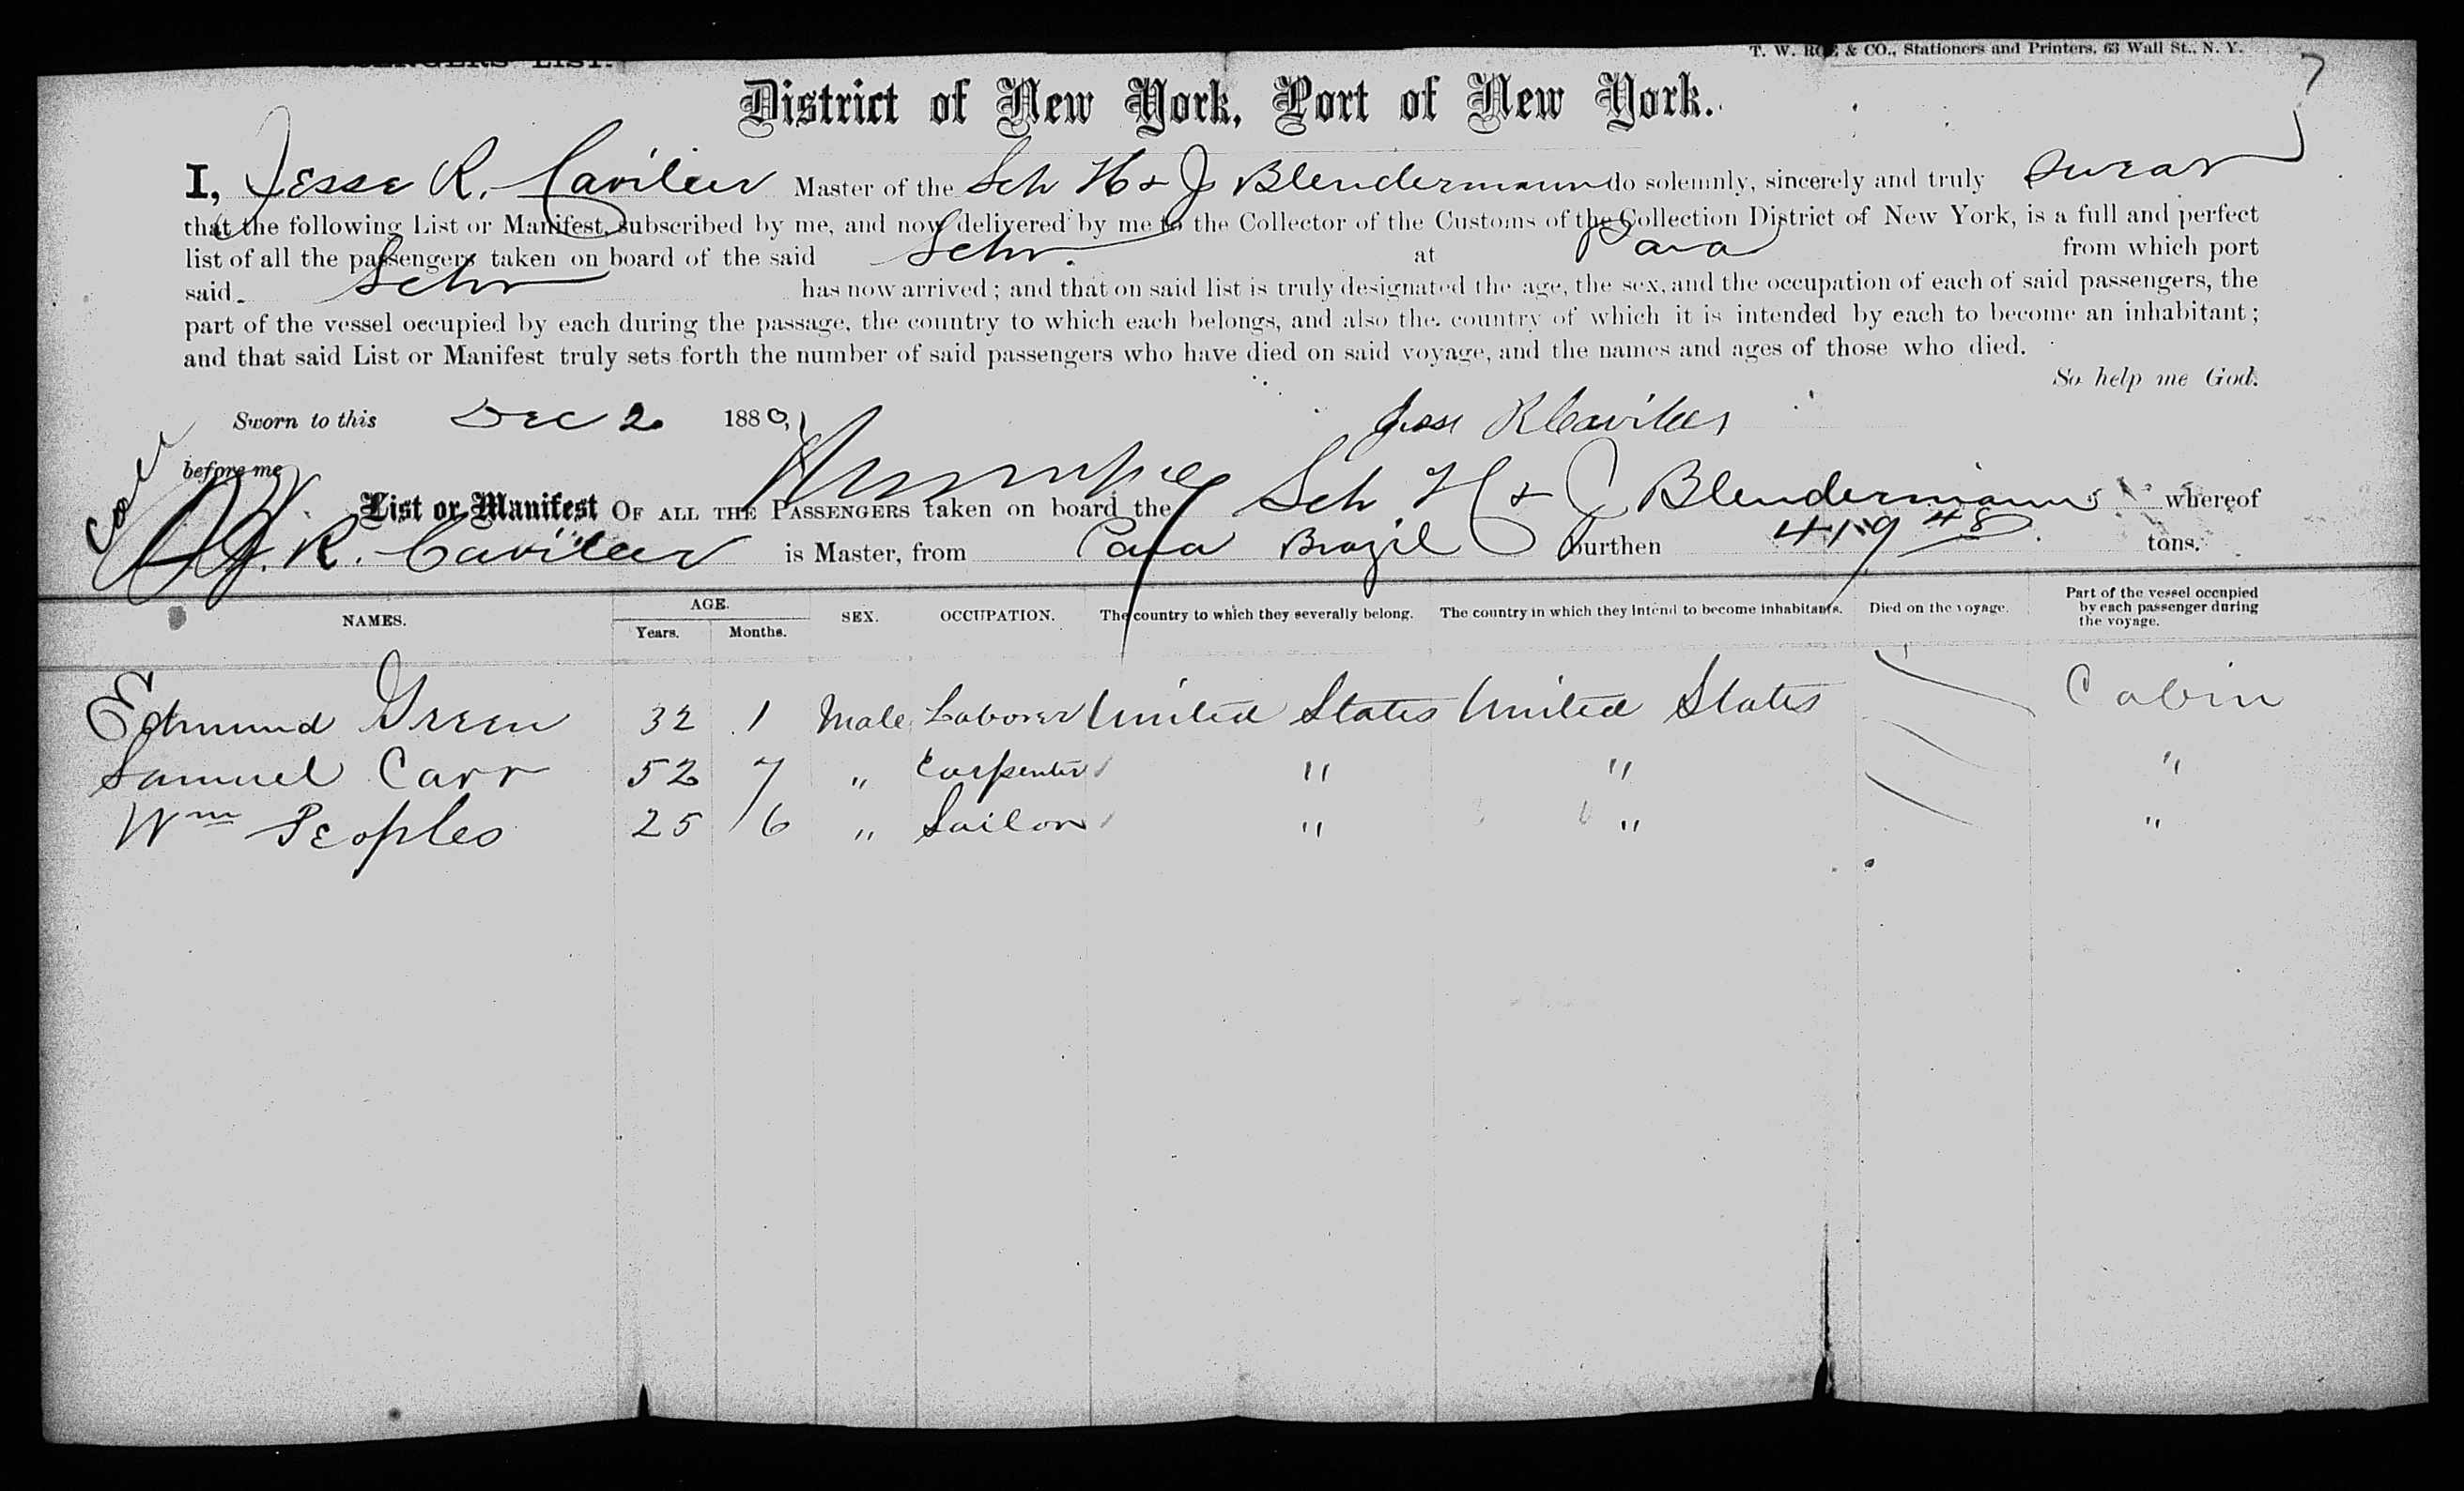 T. W. ROE & CO., Stationers and Printers, 63 Wall St., N. Y.
District of New York, Port of New York.
I, Jesse R. Cavileer Master of the Sch H & J Blendermann do solemnly, sincerely and truly swear
that the following List or Manifest, subscribed by me, and now delivered by me to the Collector of the Customs of the Collection District of New York, is a full and perfect
list of all the passengers taken on board of the said Schr. at Para from which port
said Schr has now arrived; and that on said list is truly designated the age, the sex, and the occupation of each of said passengers, the
part of the vessel occupied by each during the passage, the country to which each belongs, and also the country of which it is intended by each to become an inhabitant;
and that said List or Manifest truly sets forth the number of said passengers who have died on said voyage, and the names and ages of those who died.
So help me God.
Sworn to this Dec 2 1880, Jesse R Cavileer
before me
List or Manifest OF ALL THE PASSENGERS taken on board the Sch H & J Blendermann whereof
J. R. Cavileer is Master, from Para Brazil burthen 419 48 tons.
NAMES. AGE. Years. Months. SEX. OCCUPATION. The country to which they severally belong. The country in which they intend to become inhabitants. Died on the voyage. Part of the vessel occupied by each passenger during the voyage.
Edmund Green 32 1 Male Laborer United States United States Cabin
Samuel Carr 52 7 " Carpenter " " "
Wm Peoples 25 6 " Sailor " " "